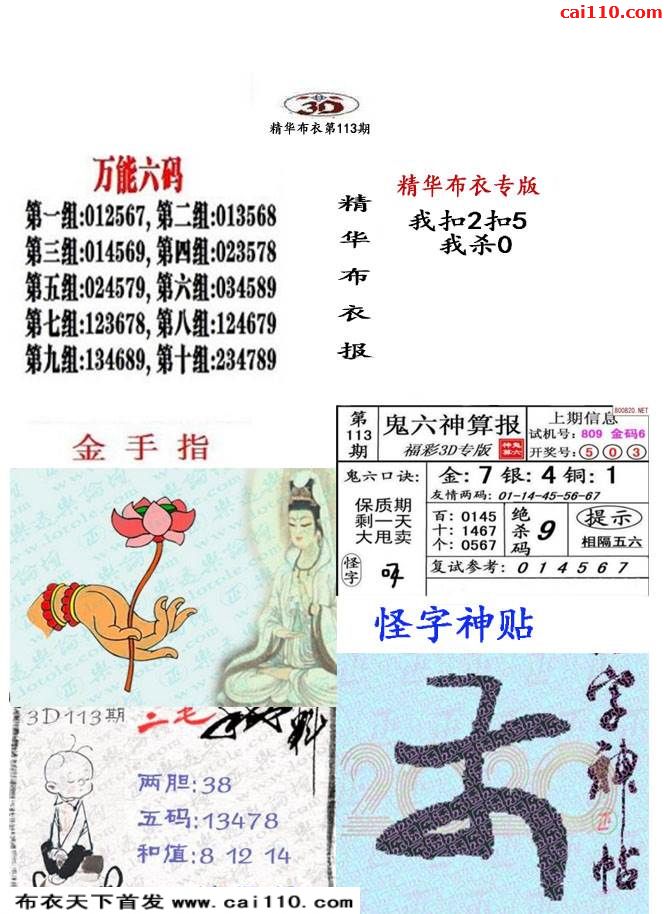 cai110.com
3D
精华布衣第113期
万能六码
第一组:012567,第二组:013568
第三组:014569,第四组:023578
第五组:024579,第六组:034589
第七组:123678,第八组:124679
第九组:134689,第十组:234789
精华布衣报
精华布衣专版
我扣2扣5
我杀0
金手指
第113期
鬼六神算报
福彩3D专版
上期信息
800820.NET
试机号:809 金码6
开奖号:503
鬼六口诀:
保质期
剩一天
大甩卖
金:7银:4铜:1
友情两码:01-14-45-56-67
百:0145
十:1467
个:0567
绝杀码
9
提示
相隔五六
怪字
复试参考:014567
怪字神贴
字神帖
2020
3D113期
三毛
两胆:38
五码:13478
和值:8 12 14
布衣天下首发 www.cai110.com